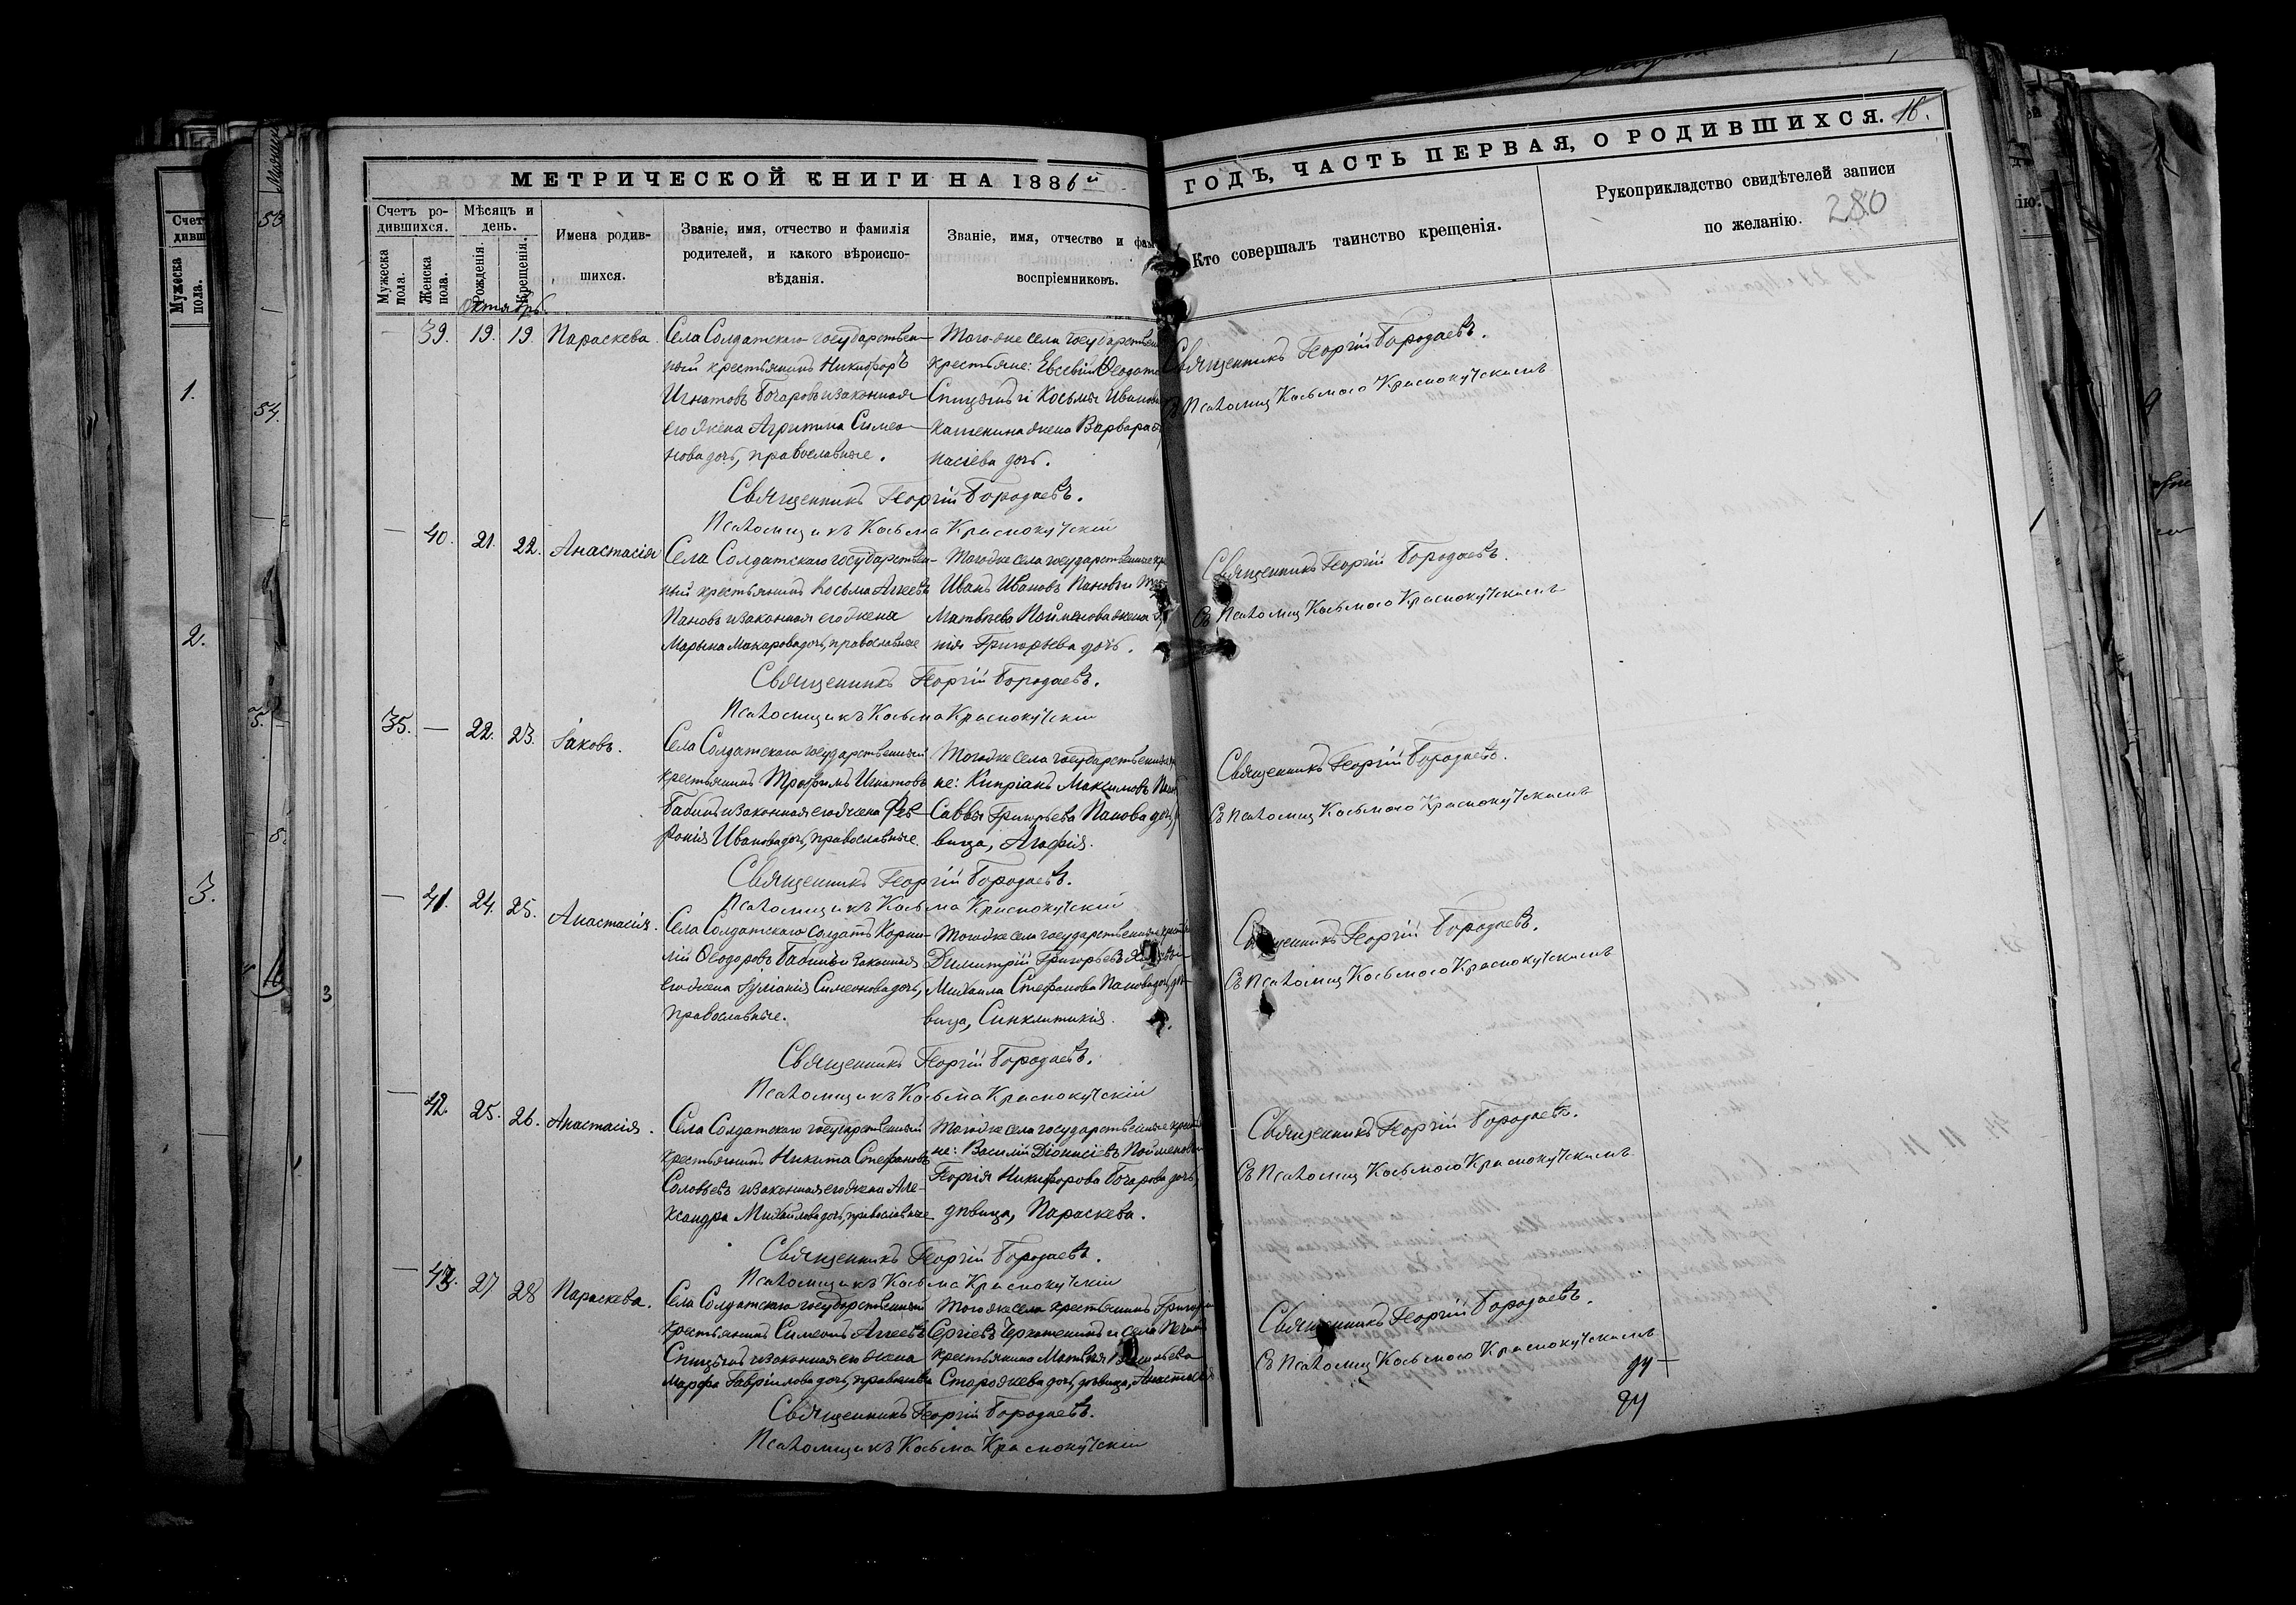 МЕТРИЧЕСКОЙ КНИГИ НА 1886й
ГОДЪ, ЧАСТЬ ПЕРВАЯ, О РОДИВШИХСЯ. 16.
Счетъ ро-
дившихся.
Мужеска пола.
Женска пола.
Мѣсяцъ и
день.
Рожденія.
Крещенія.
Имена родив-
шихся.
Званіе, имя, отчество и фамилія
родителей, и какого вѣроиспо-
вѣданія.
Званіе, имя, отчество и фам
воспріемниковъ.
Кто совершалъ таинство крещенія.
Рукоприкладство свидѣтелей записи
по желанію. 280
Октябрь.
— 39. 19. 19. Параскева.
Села Солдатскаго государствен-
ный крестьянинъ Никифоръ
Игнатовъ Богаровъ и законная
его жена Агриппина Симео-
нова дочь, православные.
Того-же села государствен
крестьяне: Евсевій Ѳеодот
Спицынъ и Косьмы Иванова
жена Варвара
пасіева дочь.
Священникъ Георгій Бородаевъ.
Псаломщикъ Косьма Краснокутскій
Священникъ Георгій Бородаевъ.
Съ Псаломщ Косьмою Краснокутскимъ
— 40. 21. 22. Анастасія
Села Солдатскаго государствен-
ный крестьянинъ Косьма Аггеевъ
Пановъ и законная его жена
Марѳина Макарова дочь, православные
Того же села государственные кре
Иванъ Ивановъ Пановъ и
Матвѣева Пойменова жена
нія Григорьева дочь.
Священникъ Георгій Бородаевъ.
Псаломщикъ Косьма Краснокутскій
Священникъ Георгій Бородаевъ.
Съ Псаломщ Косьмою Краснокутскимъ
35. — 22. 23. Іаковъ.
Села Солдатскаго государственный
крестьянинъ Трофимъ Игнатовъ
Бабинъ и законная его жена Фев-
ронія Иванова дочь, православные.
Того же села государственные
не: Кипріанъ Максимовъ Пан
Саввы Григорьева Панова дочь
вица, Агафія.
Священникъ Георгій Бородаевъ.
Псаломщикъ Косьма Краснокутскій
Священникъ Георгій Бородаевъ.
Съ Псаломщ Косьмою Краснокутскимъ
— 41. 24. 25. Анастасія.
Села Солдатскаго солдатъ Корни-
лій Ѳеодоровъ Бабинъ и законная
его жена Іуліанія Симеонова дочь,
православные.
Того же села государственные
Димитрій Григорьевъ
Михаила Стефанова Панова дочь, дѣ-
вица, Синклитикія.
Священникъ Георгій Бородаевъ.
Псаломщикъ Косьма Краснокутскій
Священникъ Георгій Бородаевъ.
Съ Псаломщ Косьмою Краснокутскимъ
— 42. 25. 26. Анастасія.
Села Солдатскаго государственный
крестьянинъ Никита Стефановъ
Соловьевъ и законная его жена Але-
ксандра Михайлова дочь, православные
Того же села государственные кресть
не: Василій Діонисіевъ Пойменовъ
Георгія Никифорова Богарова дочь,
дѣвица, Параскева.
Священникъ Георгій Бородаевъ.
Псаломщикъ Косьма Краснокутскій
Священникъ Георгій Бородаевъ.
Съ Псаломщ Косьмою Краснокутскимъ
— 43. 27 28 Параскева.
Села Солдатскаго государственный
крестьянинъ Симеонъ Аггеевъ
Спицынъ и законная его жена
Марфа Гавріилова дочь, православ
Того же села крестьянинъ Григорій
Сергіевъ и села
крестьянина Матвѣя
Старожева дочь, дѣвица, Анастасія
Священникъ Георгій Бородаевъ.
Псаломщикъ Косьма Краснокутскій
Священникъ Георгій Бородаевъ.
Съ Псаломщ Косьмою Краснокутскимъ
Мужеска пола.
1.
2.
3.
53
54.